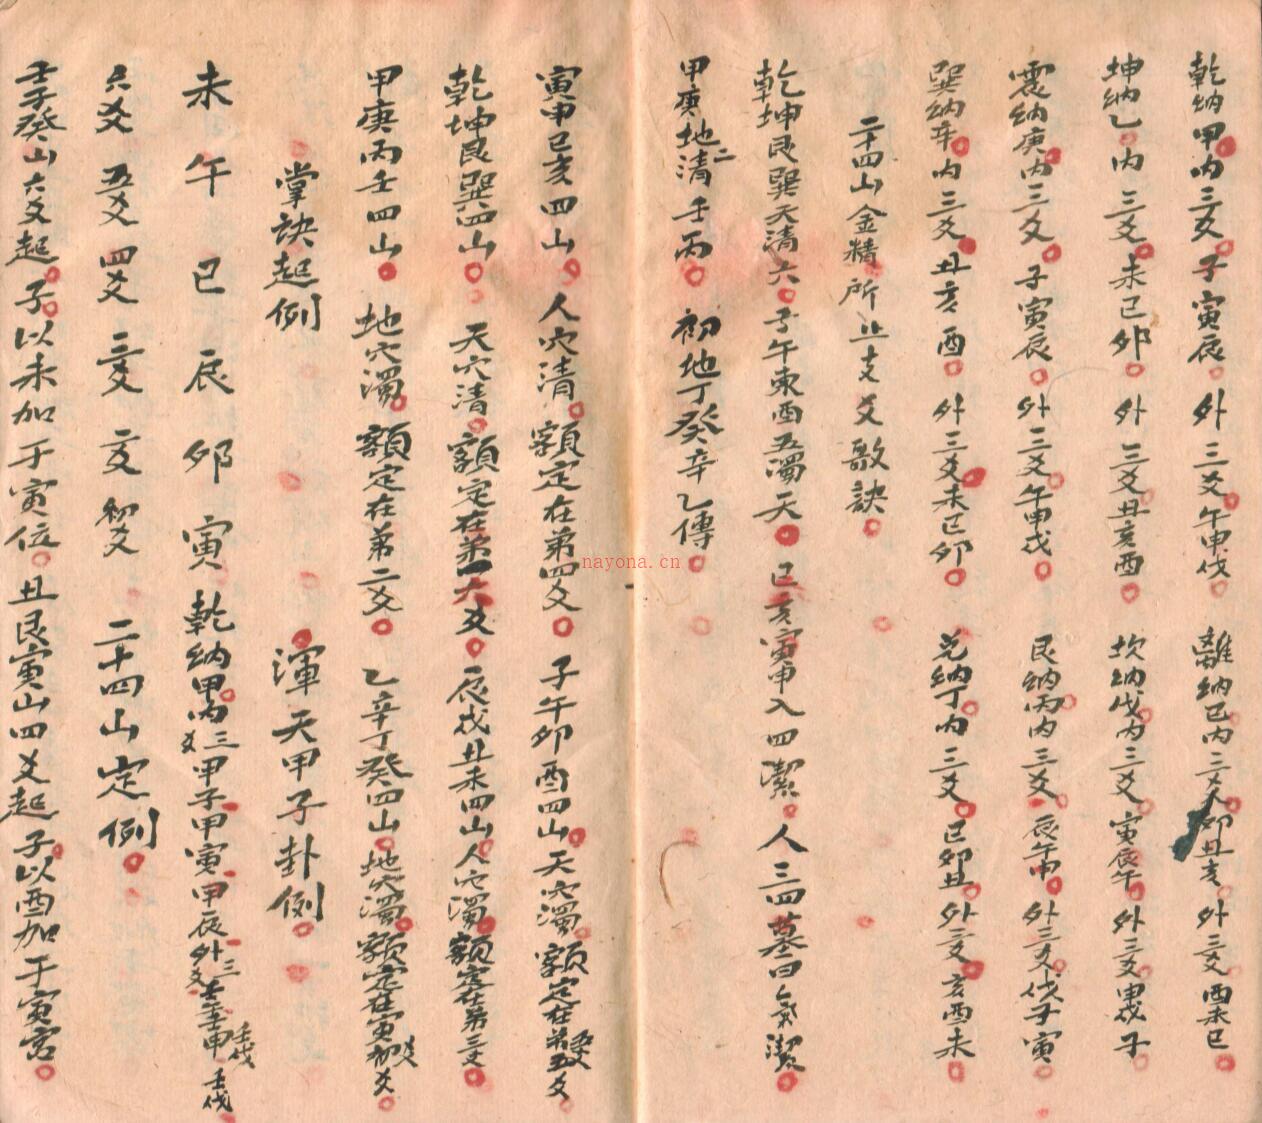 乾納甲內三爻子寅辰外三爻午申伐 離納已內三爻卯丑亥外三爻酉未巳
坤納乙內三爻未已卯外三爻丑亥酉 坎納戊內三爻寅辰午外三爻申戌子
震納庚內三爻子寅辰外三爻午申戌 艮納丙內三爻辰午申外三爻伐子寅
巽納辛內三爻丑亥酉外三爻未已卯 兌納丁內三爻巳卯丑外三爻亥酉未
二十四山金精所止支爻歌訣
乾坤艮巽天清六子午東酉五濁天 已亥寅申入四潔人三四墓四氣潔
甲庚地清二壬丙 初地丁癸辛乙傳
nayona.cn
寅申巳亥四山人穴清額定在第四爻 子午卯酉四山天穴濁額定在第五爻
乾坤艮巽四山天穴清額定在第六爻 辰戌丑未四山人穴濁額定在第三爻
甲庚丙壬四山地穴濁額定在第二爻 乙辛丁癸四山地穴濁額定在寅初爻
掌訣起例 渾天甲子卦例
未午巳辰卯寅 乾納甲內三爻甲子甲寅甲辰外三爻壬午壬申壬戌
六爻五爻四爻三爻二爻初爻 二十四山定例
壬子癸山六爻起子以未加于寅位丑艮寅山四爻起子以酉加于寅宮